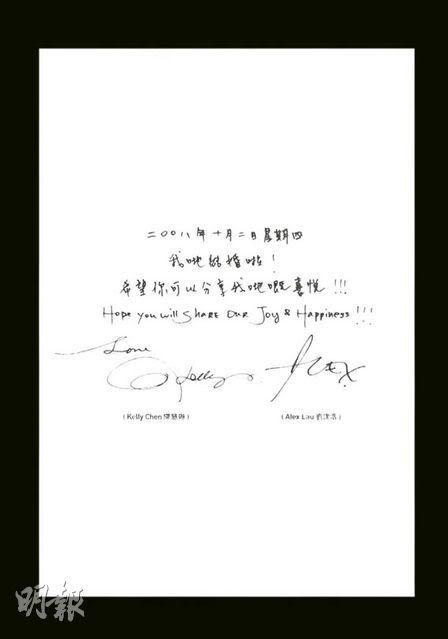 二00八年 十月二日 星期四
我哋結婚啦!
希望你可以分享我哋嘅喜悅!!!
Hope you will Share Our Joy & Happiness!!!
Love
Kelly
Alex
(Kelly Chen 陳慧琳)
(Alex Lau 劉建浩)
明報